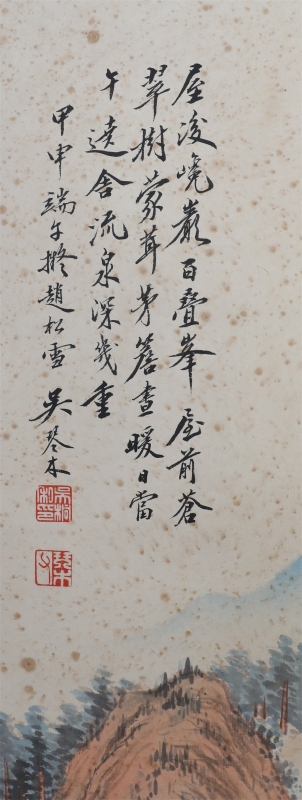 屋後嶢巖百疊峯屋前蒼
翠樹蒙茸茅簷晝暖日當
午遶舍流泉深幾重
甲申端午擬趙松雪吳琴木